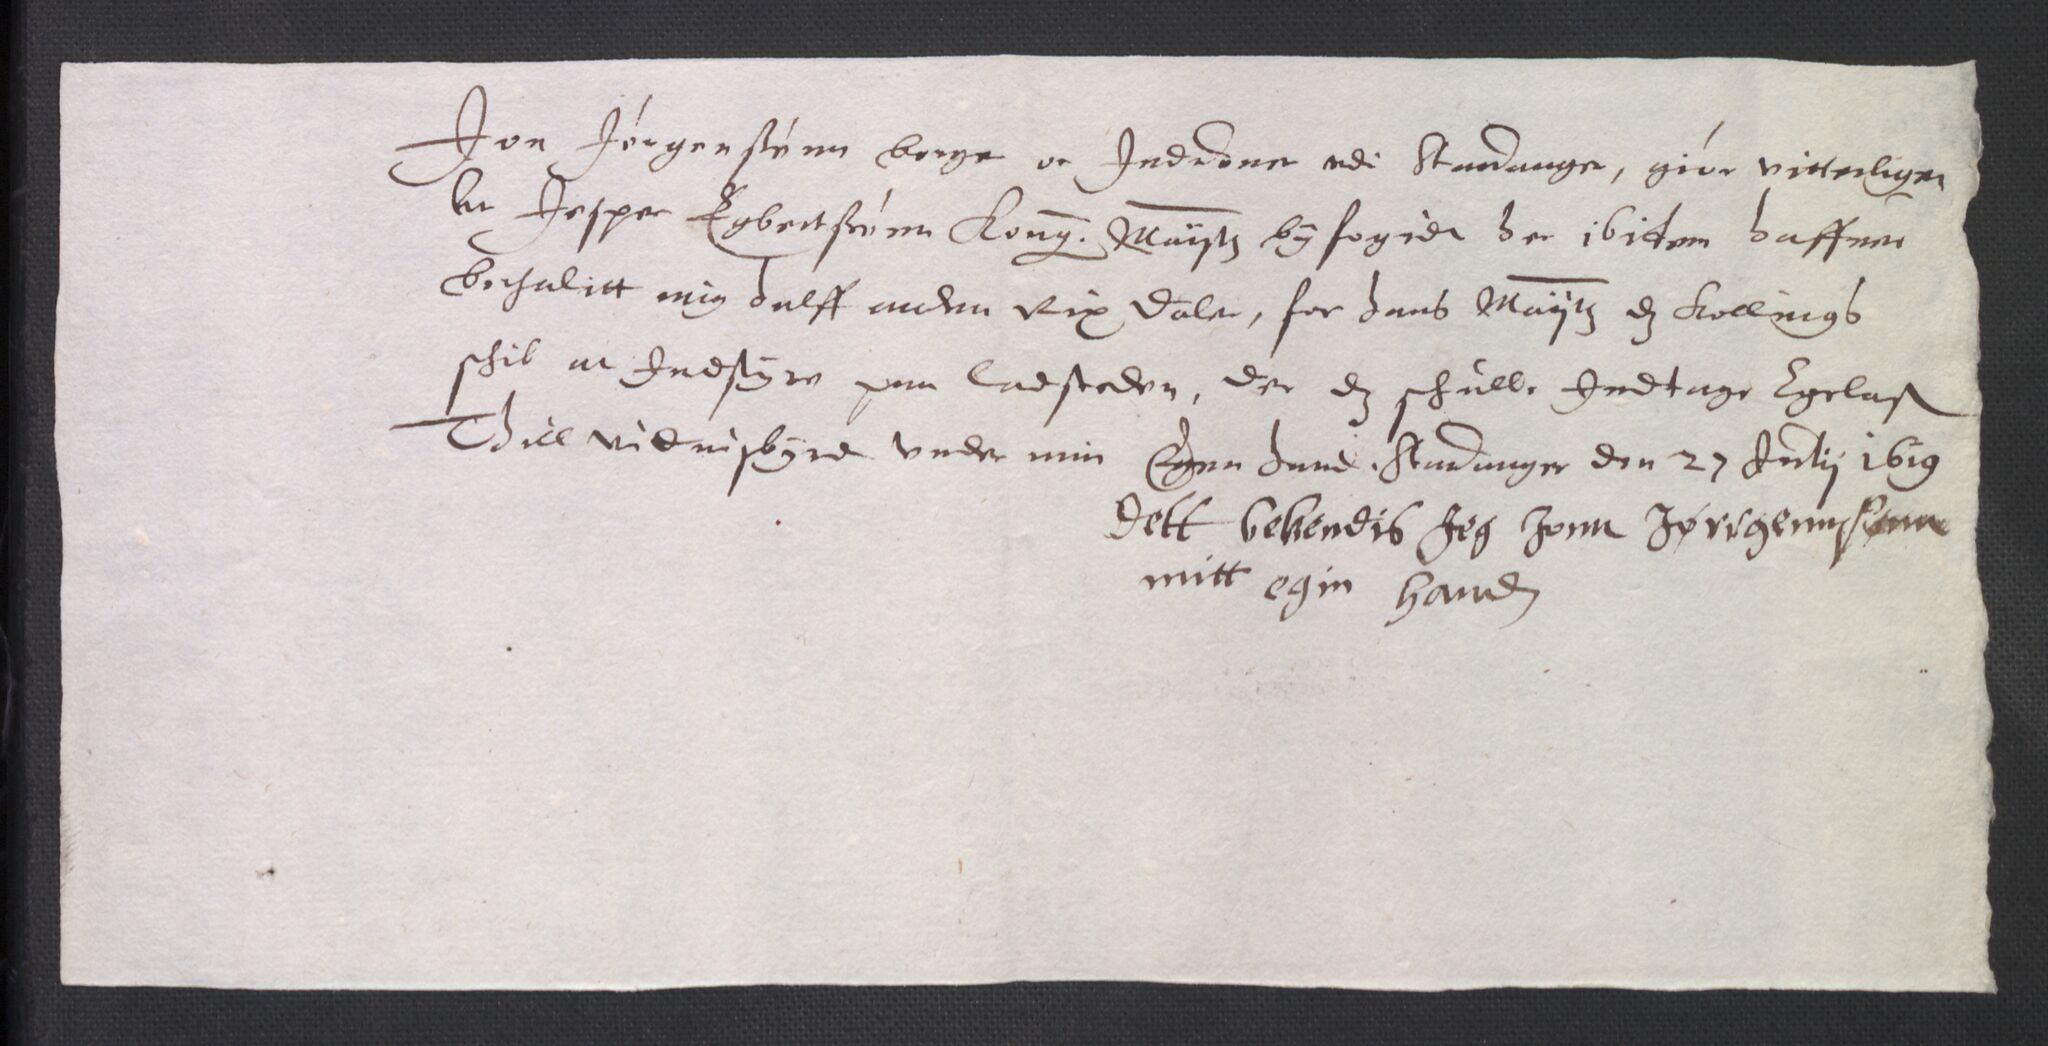 Jon Jørgensßønn borger oc Induoner udi Stauanger, giør vitterligen
At Jesper Egbertsßønn Kong. Maÿstz bÿfogide her ibitem haffuer
bethalitt mig halff anden Rix daler, for hans Maÿtz dz Kollings
schib at Indstÿre paa ladsteden, der dz schulle Indtage Egelast
Thill vidnisbÿrd under min Egen hand. Stauanger den 27 Julij 1619
dett bekendis Jeg Jonn Jørrgennsønn
mitt egin haand